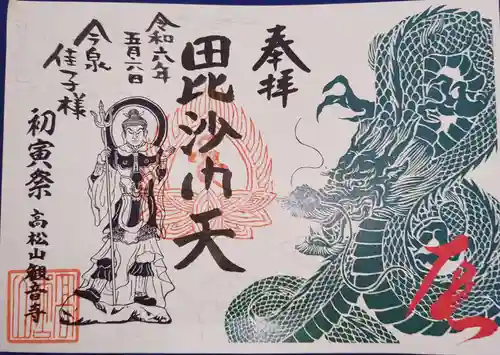 奉拝
毘沙门天
令和六年
五月六日
今泉
佳子様
初寅祭
高松山観音寺